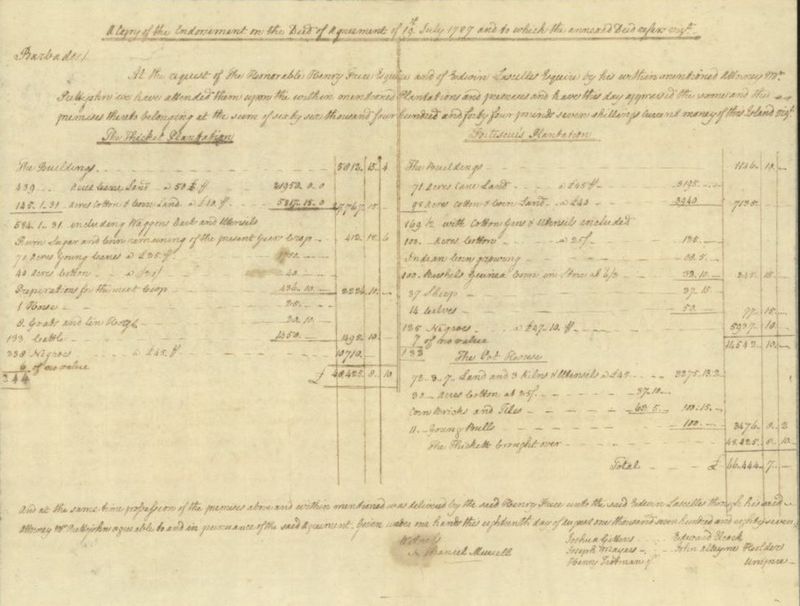 A Copy of the Endorsement on the Deed of Agreement of 19th July 1787 and to which the annexed Deed refers vizt.
Barbados.
At the request of The Honorable Henry Frere Esquire and of Edwin Lascelles Esquire by his within mentioned Attorney Mr.
we have attended them upon the within mentioned Plantations and premises and have this day appraised the same and the
premises thereto belonging at the sum of sixty six thousand four hundred and forty four pounds seven shillings current money of this Island vizt.
The Thicket Plantation
The Buildings 5012 .. 15 .. 4
439 .. Acres Cane Land a 50£ 21950 . 0 . 0
145 . 1 . 31 acres Cotton & Corn Land a £40 5817 . 15 . 0 27,767 15
584 . 1 . 31 including Waggons Cart and Utensils
Rum Sugar and Corn remaining of the present Year Crop 412 . 12 . 6
70 acres Young Canes a £25
40 acres Cotton 40
Preparations for the next Crop 436 . 10 3226 . 10
1 Horse 25
8 Goats and 20 . 10
133 Cattle 1350 1495 . 10
238 Negroes a £45 10710
6 of no value
244 £ 48,425 . 0 . 10
Fortescues Plantation
The Buildings 1146 . 10
71 Acres Cane Land a £45 3195
98 Acres Cotton & Corn Land a £40 3940 7135
169 with Cotton Gins & Utensils included
100 Acres Cotton a 25/ 125
Indian Corn growing
100 Bushels Guinea Corn in Store at 6/3
37 Sheep 27 . 15
14 Calves 50 77 . 15
125 Negroes a £47 . 10 5937 . 10
7 of no value 14543 . 10
132
The Pot House
72 . 3 . 7 Land and 3 Kilns & Utensils a £45 3275 . 13 . 2
30 Acres Cotton at 25/ 37 . 10
Corn Bricks and Tiles 63 . 5 100 . 15
11 Young Bulls 100 3476 . 8 . 2
The Thickett brought over 48,425 . 0 . 10
Total £ 66,444 . 7
And at the same time possession of the premises above and within mentioned was delivered by the said Henry Frere unto the said Edwin Lascelles through his said
Attorney Mr. agreable to and in pursuance of the said Agreement. Given under our hands this eighteenth day of August one thousand seven hundred and eighty seven
Witness
Joshua Gittens
Edward
Joseph Mayers
John Alleyne Holder
Henry Trotman
Umpire